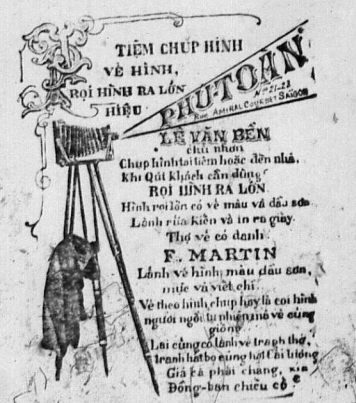 TIỆM CHỤP HÌNH
VẼ HÌNH,
RỌI HÌNH RA LỚN
HIỆU
PHU-TOAN
Nos 21-23
RUE AMIRAL COURBET SAIGON
LÊ VĂN BỀN
chủ nhơn
Chụp hình tại tiệm hoặc đến nhà,
Khi Quí khách cần dùng
RỌI HÌNH RA LỚN
Hình rọi lớn có vẽ màu và dầu sơn
Lãnh rửa kiến và in ra giấy.
Thợ vẽ có danh
F. MARTIN
Lãnh vẽ hình, màu dầu sơn,
mực và viết chì.
Vẽ theo hình chụp hay là coi hình
người ngồi tự nhiên mà vẽ cũng
giống
Lại cũng có lãnh vẽ tranh thờ,
tranh hát bộ cùng hát Cải lương
Giá cả phải chăng, xin
Đồng-ban chiếu cố